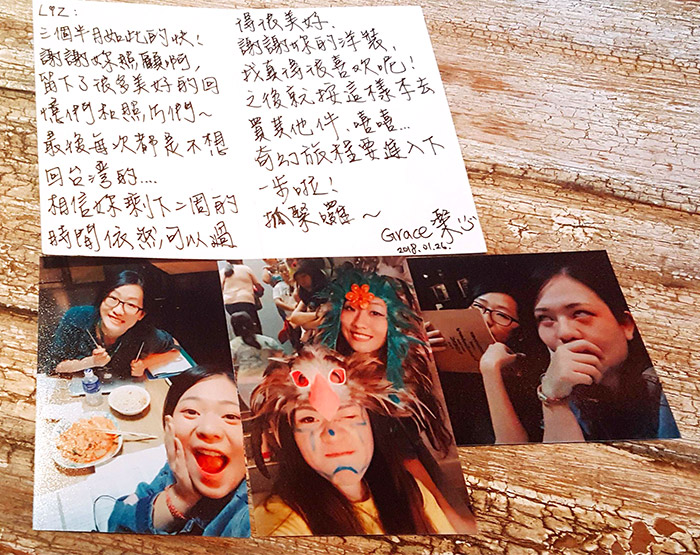 LIZ:
三個半月如此的快!
謝謝妳照顧啊,
留下了很多美好的回
憶們和照片們~
最後每次都是不想
回台灣的....
相信妳剩下二周的
時間依然可以過
得很美好.
謝謝妳的洋裝,
我真得很喜歡呢!
之後就按這樣去
買其他件.嘻嘻...
奇幻旅程要進入下
一步啦!
抓緊囉~
Grace 心
2018.01.26.